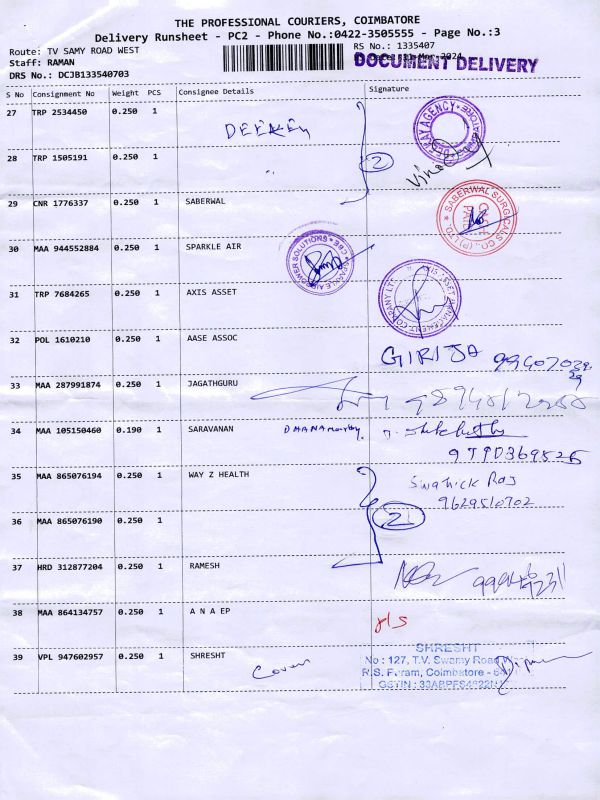 THE PROFESSIONAL COURIERS, COIMBATORE
Delivery Runsheet - PC2 - Phone No.:0422-3505555 - Page No.:3
Route: TV SAMY ROAD WEST
RS No.: 1335407
Staff: RAMAN
31-Mar-2024
DOCUMENT DELIVERY
DRS No.: DCJB133540703
S No Consignment No Weight PCS Consignee Details Signature
27 TRP 2534450 0.250 1
AGENCY
28 TRP 1505191 0.250 1
2
29 CNR 1776337 0.250 1 SABERWAL
SABERWAL SURGICALS CO., (P) LTD
30 MAA 944552884 0.250 1 SPARKLE AIR
SPARKLE AIRPOWER SOLUTIONS * CBE *
31 TRP 7684265 0.250 1 AXIS ASSET
AXIS ASSET MANAGEMENT COMPANY LTD
32 POL 1610210 0.250 1 AASE ASSOC
GIRIJA
33 MAA 287991874 0.250 1 JAGATHGURU
34 MAA 105150460 0.190 1 SARAVANAN
9790369525
35 MAA 865076194 0.250 1 WAY Z HEALTH
Swathick Raj
9629510702
36 MAA 865076190 0.250 1
2
37 HRD 312877204 0.250 1 RAMESH
38 MAA 864134757 0.250 1 A N A EP
39 VPL 947602957 0.250 1 SHRESHT
Cover
SHRESHT
No : 127, T.V. Swamy Road
R.S. Puram, Coimbatore -
GSTIN :